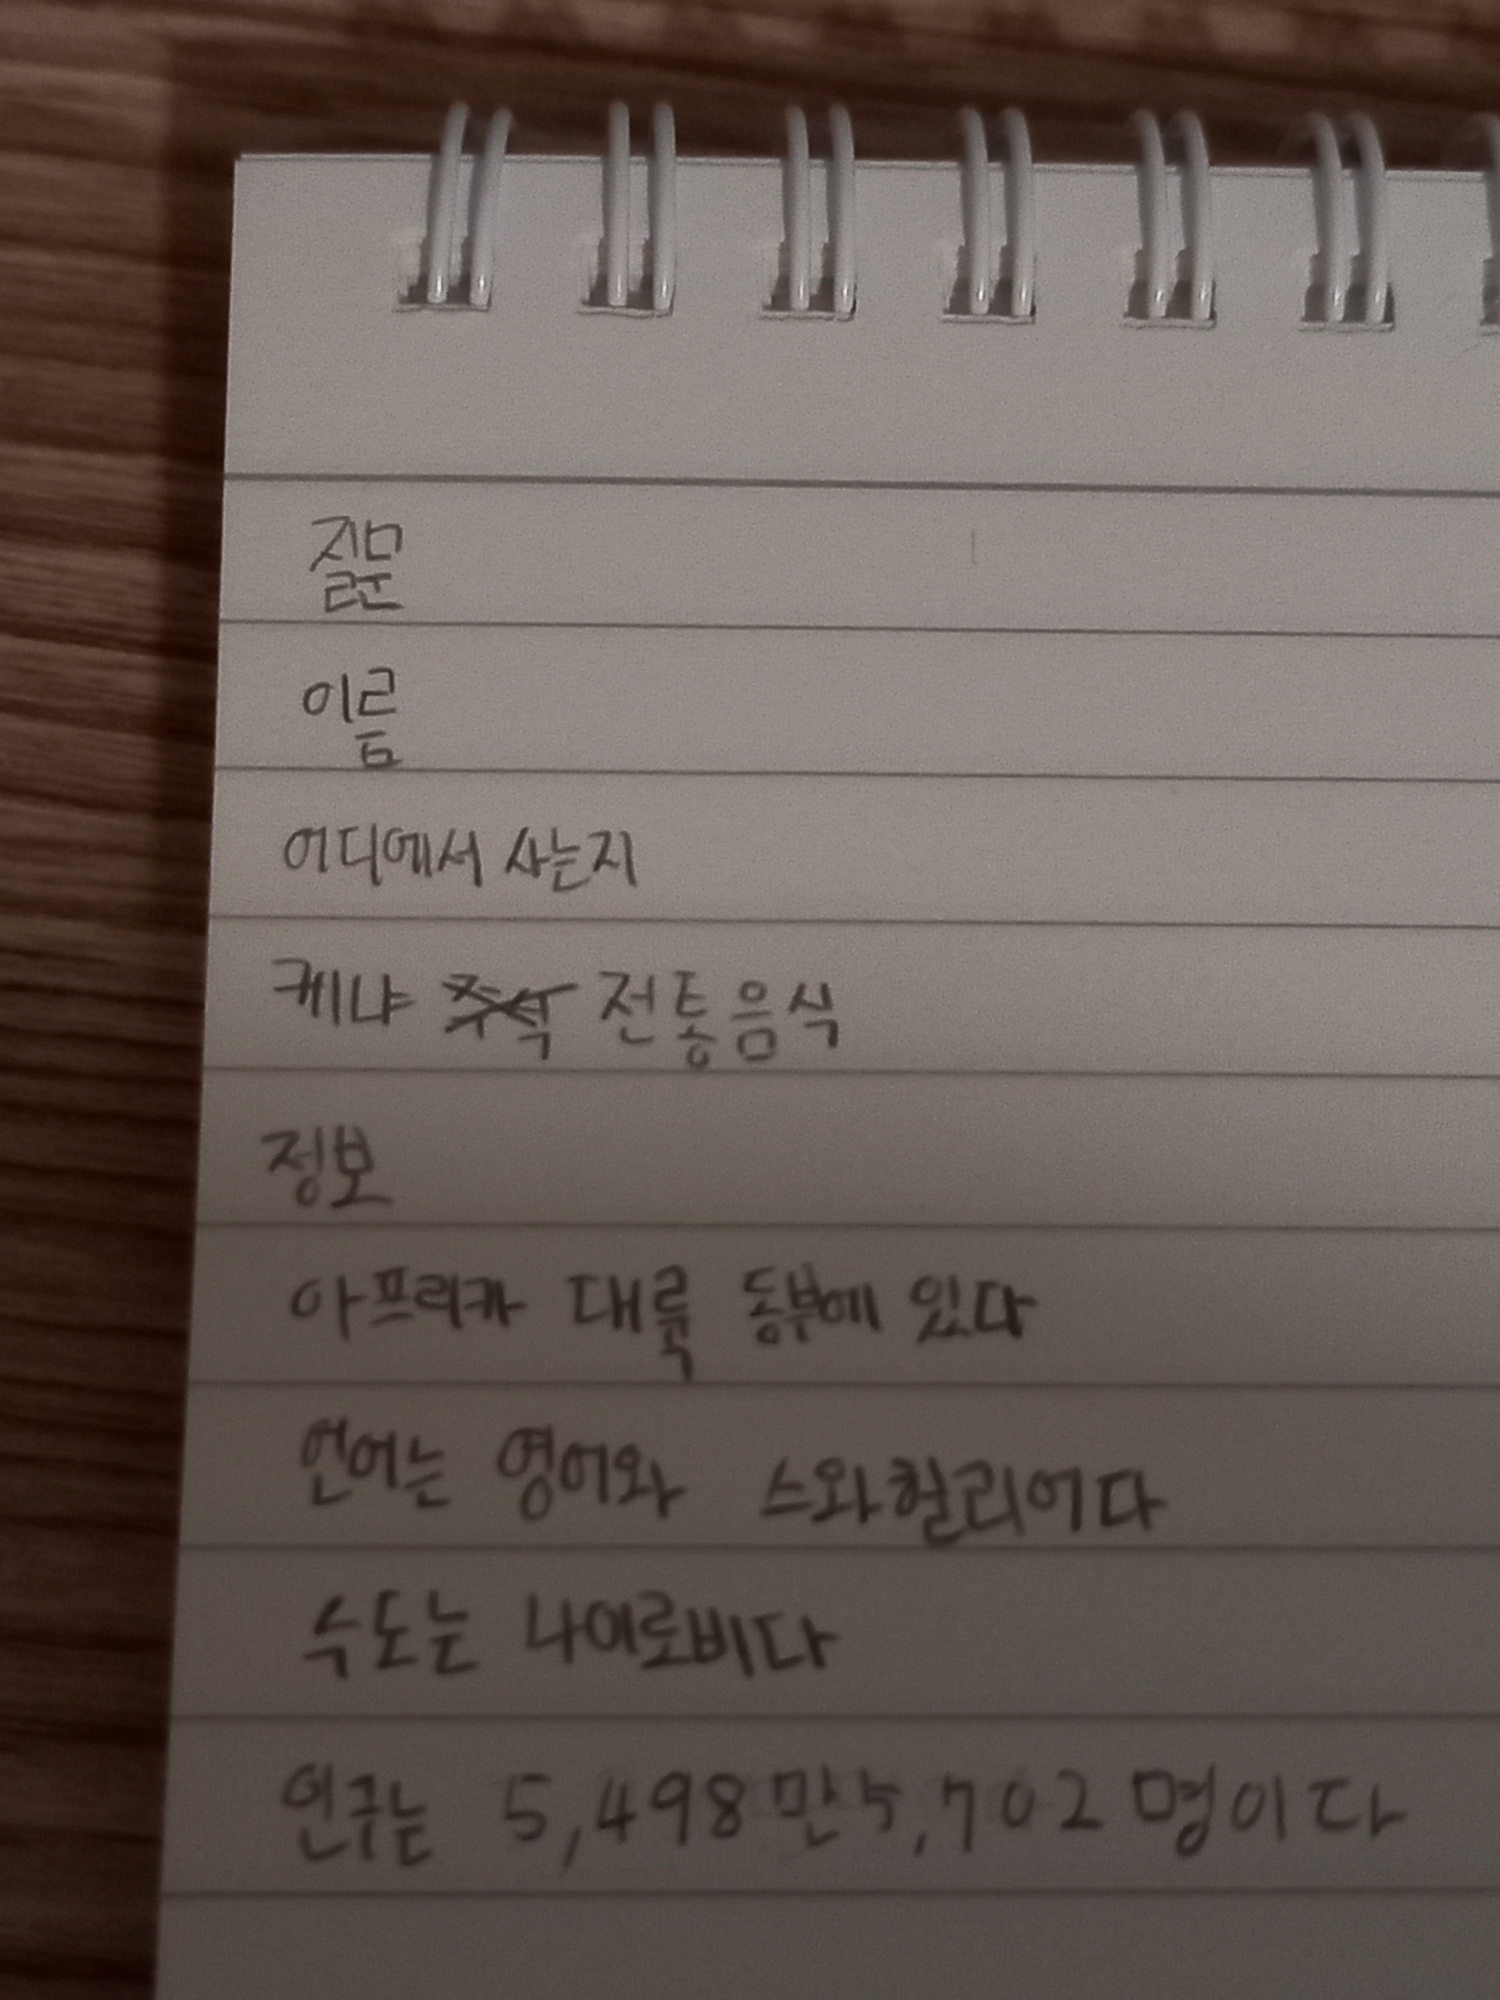 질문
이름
어디에서 사는지
케냐 전통음식
정보
아프리카 대륙 동부에 있다
언어는 영어와 스와힐리어다
수도는 나이로비다
인구는 5,498만5,702명이다